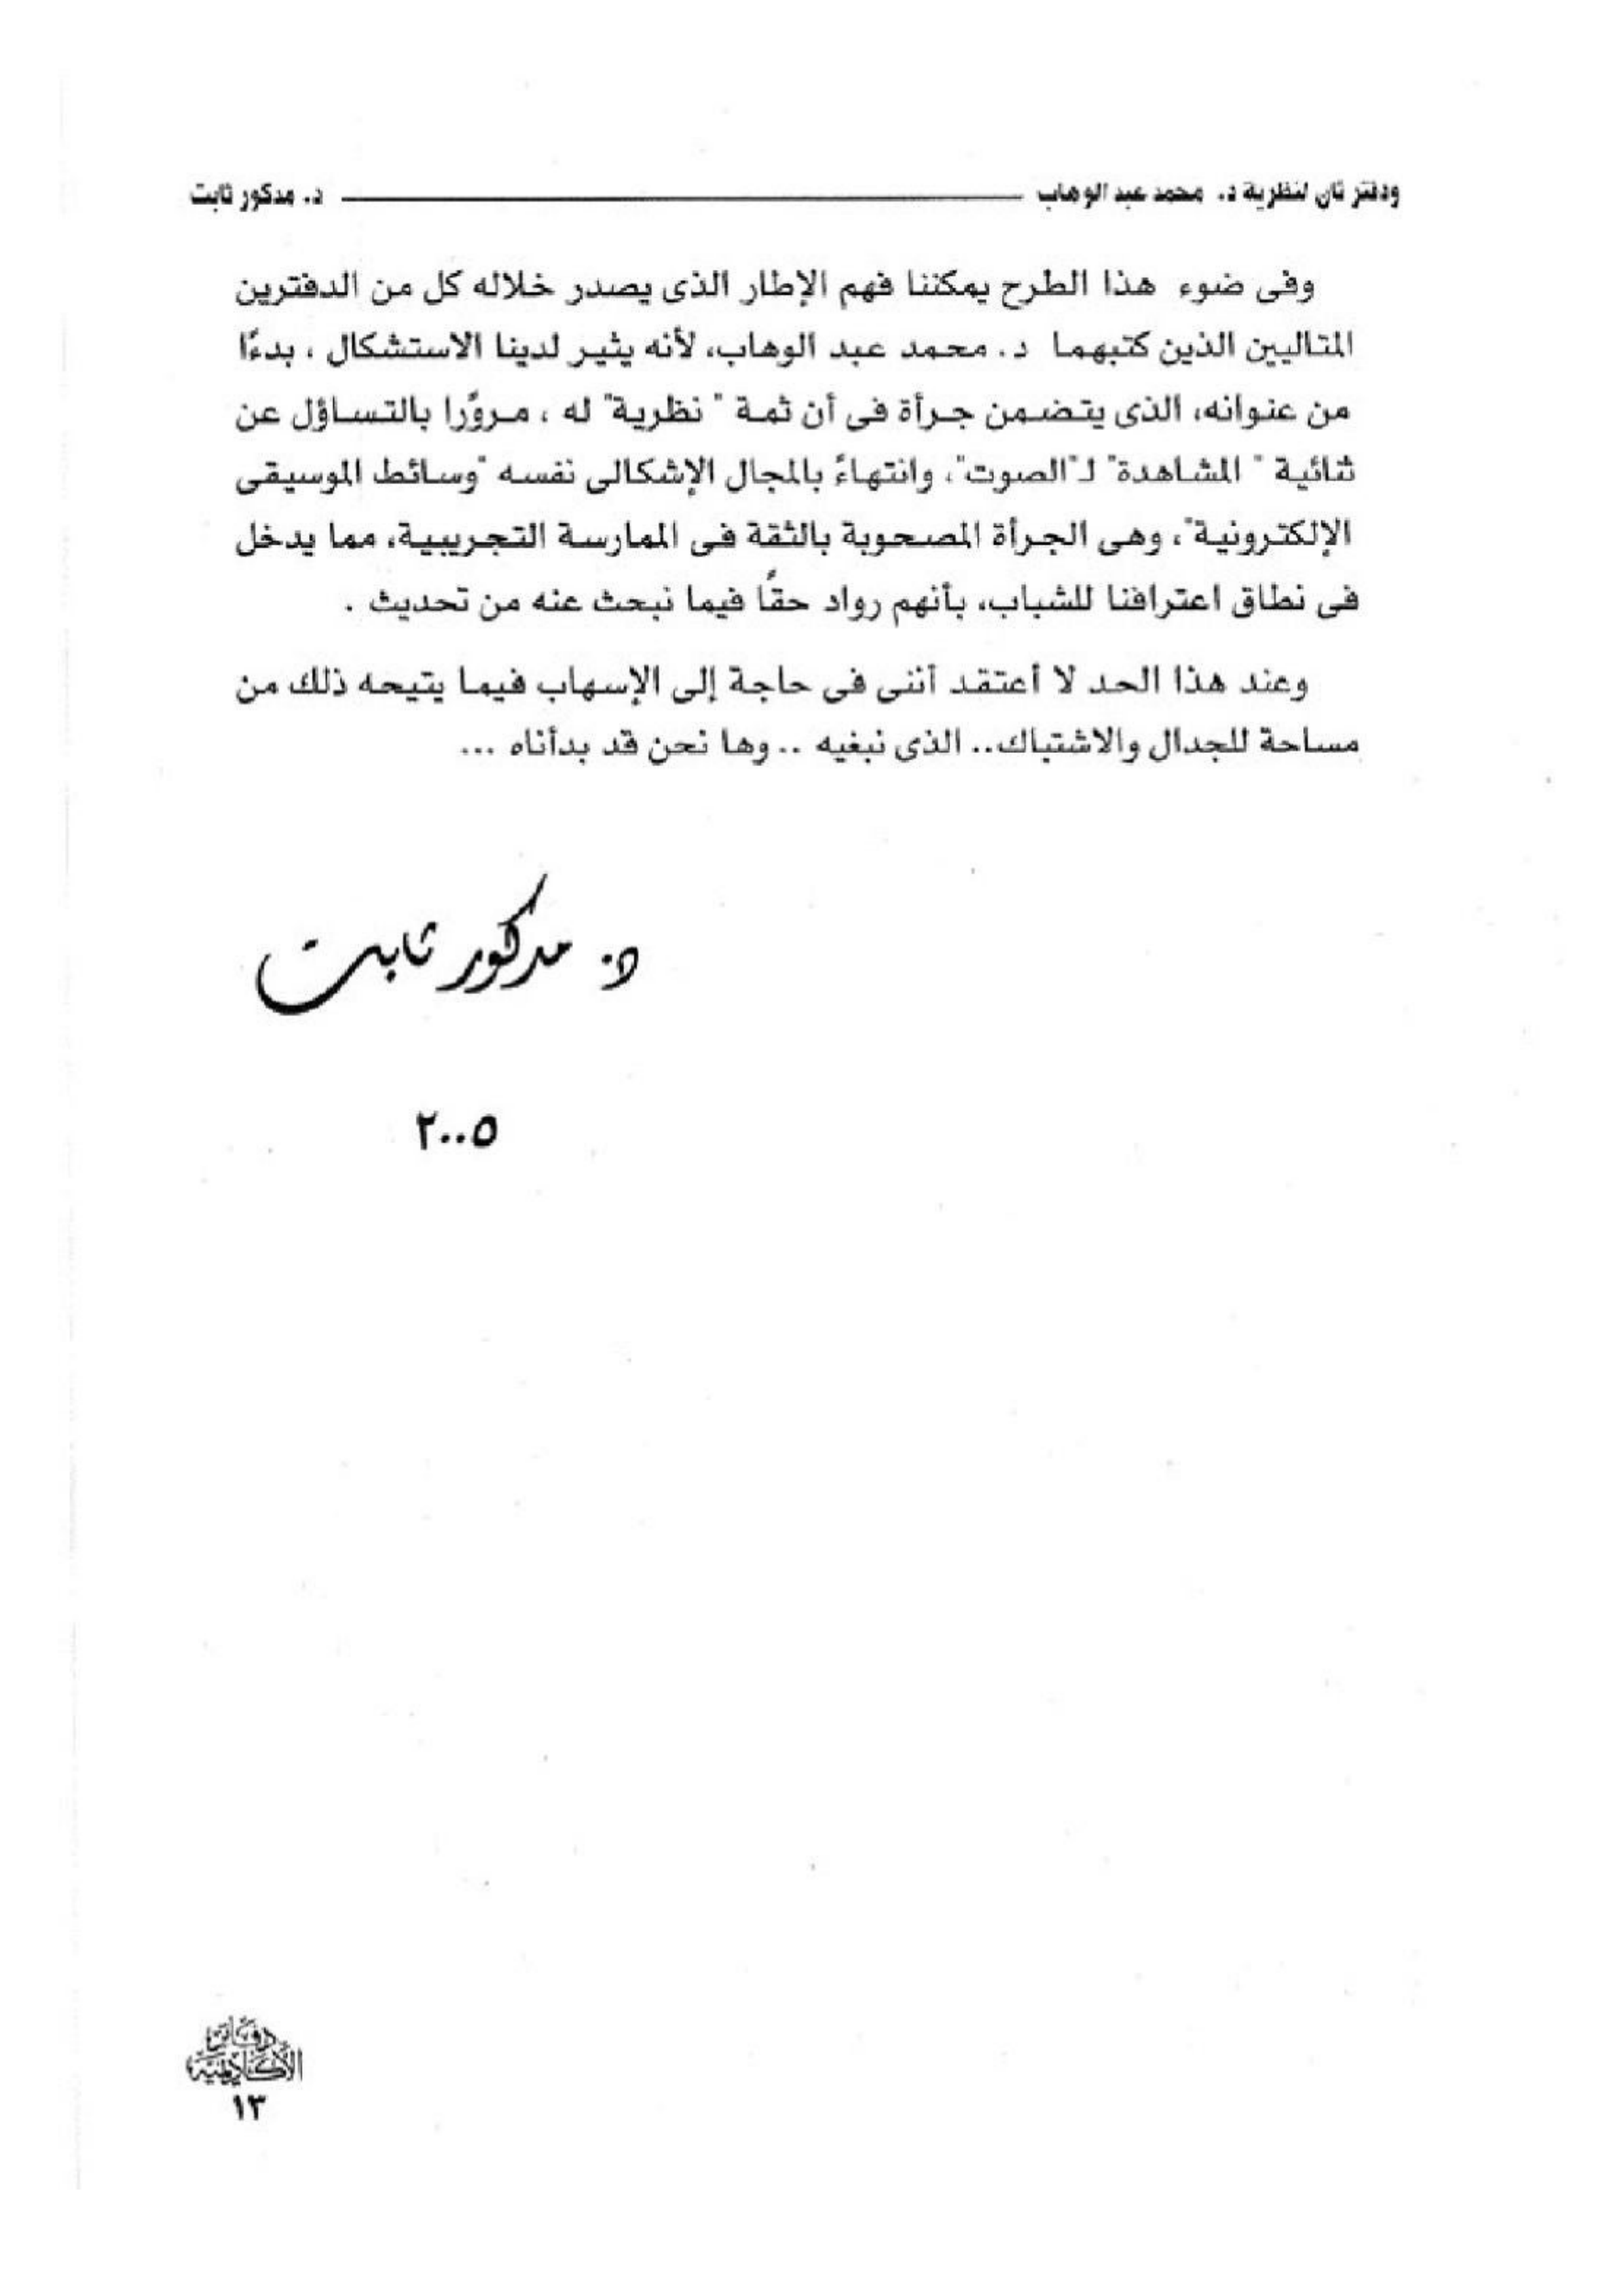 ودفتر ثان لنظرية د. محمد عبد الوهاب د. مدكور ثابت
وفى ضوء هذا الطرح يمكننا فهم الإطار الذى يصدر خلاله كل من الدفترين
المتاليين الذين كتبهما د. محمد عبد الوهاب، لأنه يثير لدينا الاستشكال ، بدءًا
من عنوانه، الذى يتضمن جرأة فى أن ثمة " نظرية" له ، مرورًا بالتساؤل عن
ثنائية " المشاهدة" لـ"الصوت"، وانتهاءً بالمجال الإشكالى نفسه "وسائط الموسيقى
الإلكترونية"، وهى الجرأة المصحوبة بالثقة فى الممارسة التجريبية، مما يدخل
فى نطاق اعترافنا للشباب، بأنهم رواد حقًا فيما نبحث عنه من تحديث .
وعند هذا الحد لا أعتقد أننى فى حاجة إلى الإسهاب فيما يتيحه ذلك من
مساحة للجدال والاشتباك.. الذى نبغيه .. وها نحن قد بدأناه ...
د. مدكور ثابت
٢٠٠٥
دفاتر
الأكاديمية
١٣